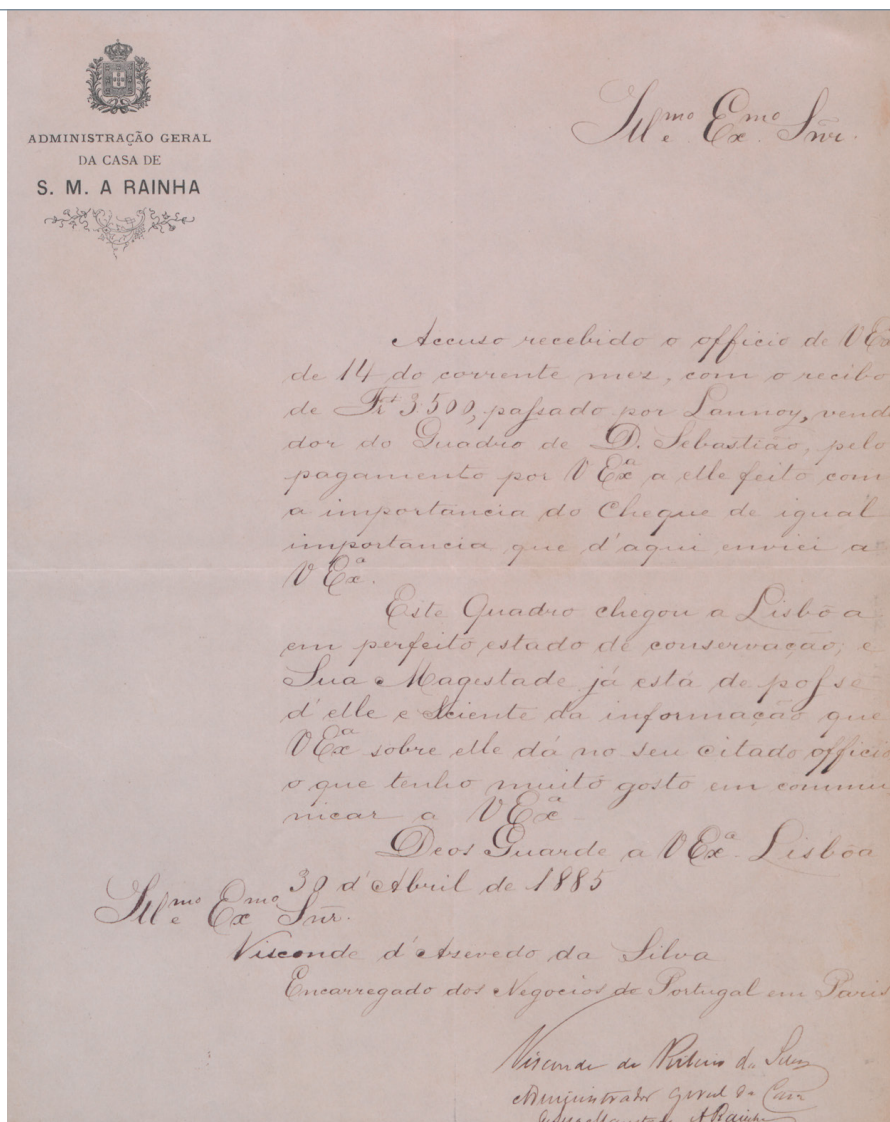 ADMINISTRAÇÃO GERAL
DA CASA DE
S. M. A RAINHA
Ill.mo e Ex.mo Snr.
Accuso recebido o officio de V Exa
de 14 do corrente mez, com o recibo
de Fr 3500, passado por Lannoy, vend
dor do Quadro de D. Sebastião, pelo
pagamento por V Exa a elle feito com
a importancia do Cheque de igual
importancia que d'aqui enviei a
V Exa.
Este Quadro chegou a Lisbôa
em perfeito estado de conservação; e
Sua Magestade já está de posse
d'elle e sciente da informação que
V Exa sobre elle dá no seu citado officio
o que tenho muito gosto em commu
nicar a V Exa
Deos Guarde a V Exa. Lisbôa
30 d'Abril de 1885
Ill.mo e Ex.mo Snr.
Visconde d'Azevedo da Silva
Encarregado dos Negocios de Portugal em Paris
Visconde de da
Administrador Geral da Casa
A Rainha